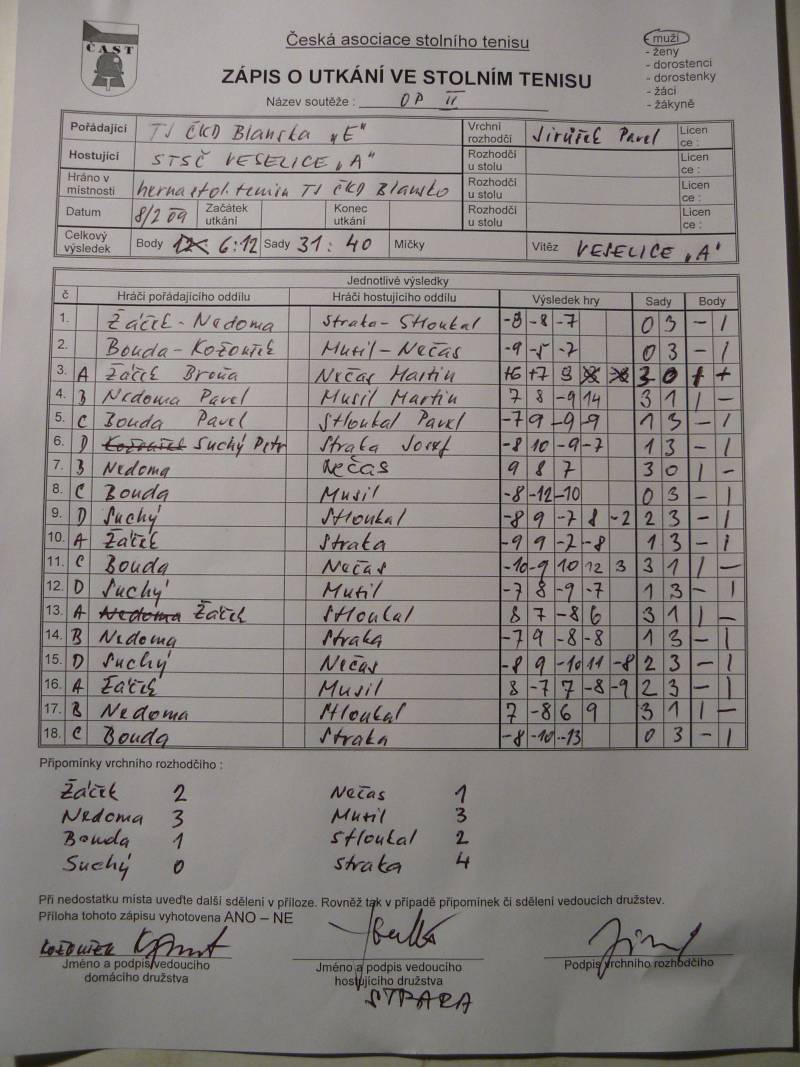 ČAST
Česká asociace stolního tenisu
ZÁPIS O UTKÁNÍ VE STOLNÍM TENISU
Název soutěže : OP II
muži
- ženy
- dorostenci
- dorostenky
- žáci
- žákyně
Pořádající TJ ČKD Blanska "E" Vrchní rozhodčí Jirůšek Pavel Licence :
Hostující STSČ VESELICE "A" Rozhodčí u stolu Licence :
Hráno v místnosti herna stol. tenisu TJ ČKD Blansko Rozhodčí u stolu Licence :
Datum 8/2 09 Začátek utkání Konec utkání Rozhodčí u stolu Licence :
Celkový výsledek Body 6:12 Sady 31:40 Míčky Vítěz VESELICE "A"
Jednotlivé výsledky
č Hráči pořádajícího oddílu Hráči hostujícího oddílu Výsledek hry Sady Body
1. Žáček - Nedoma Straka - Stloukal -8 -8 -7 0 3 - 1
2. Bouda - Kožoušek Musil - Nečas -9 -5 -7 0 3 - 1
3. A Žáček Nečas Martin +6 +7 9 3 0
4. B Nedoma Pavel Musil Martin 7 8 -9 14 3 1 1 -
5. C Bouda Pavel Stloukal Pavel -7 9 -9 -9 1 3 - 1
6. D Kožoušek Suchý Petr Straka Josef -8 10 -9 -7 1 3 - 1
7. B Nedoma Nečas 9 8 7 3 0 1 -
8. C Bouda Musil -8 -12 -10 0 3 - 1
9. D Suchý Stloukal -8 9 -7 8 -2 2 3 - 1
10. A Žáček Straka -9 9 -2 -8 1 3 - 1
11. C Bouda Nečas -10 -9 10 12 3 3 1 1 -
12. D Suchý Musil -7 8 -9 -7 1 3 - 1
13. A Nedoma Žáček Stloukal 8 7 -8 6 3 1 1 -
14. B Nedoma Straka -7 9 -8 -8 1 3 - 1
15. D Suchý Nečas -8 9 -10 11 -8 2 3 - 1
16. A Žáček Musil 8 -7 7 -8 -9 2 3 - 1
17. B Nedoma Stloukal 7 -8 6 9 3 1 1 -
18. C Bouda Straka -8 -10 -13 0 3 - 1
Připomínky vrchního rozhodčího :
Žáček 2 Nečas 1
Nedoma 3 Musil 3
Bouda 1 Stloukal 2
Suchý 0 Straka 4
Při nedostatku místa uveďte další sdělení v příloze. Rovněž tak v případě připomínek či sdělení vedoucích družstev.
Příloha tohoto zápisu vyhotovena ANO – NE
KOŽOUŠEK
Jméno a podpis vedoucího domácího družstva
Jméno a podpis vedoucího hostujícího družstva
Podpis vrchního rozhodčího
STRAKA